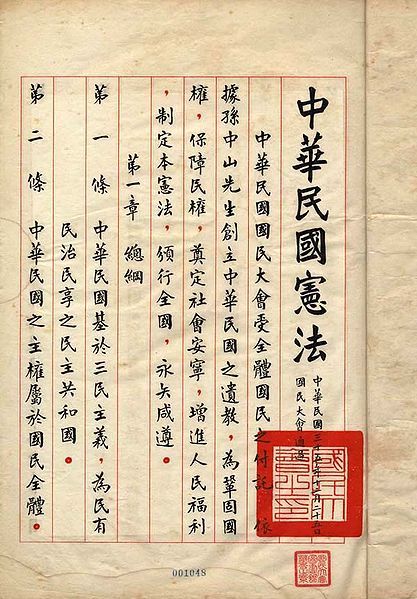 中華民國憲法
中華民國三十五年十二月二十五日
國民大會通過
中華民國國民大會受全體國民之付託，依
據孫中山先生創立中華民國之遺教，為鞏固國
權，保障民權，奠定社會安寧，增進人民福利
，制定本憲法，頒行全國，永矢咸遵。
第一章　總綱
第一條　中華民國基於三民主義，為民有
民治民享之民主共和國。
第二條　中華民國之主權屬於國民全體。
001048